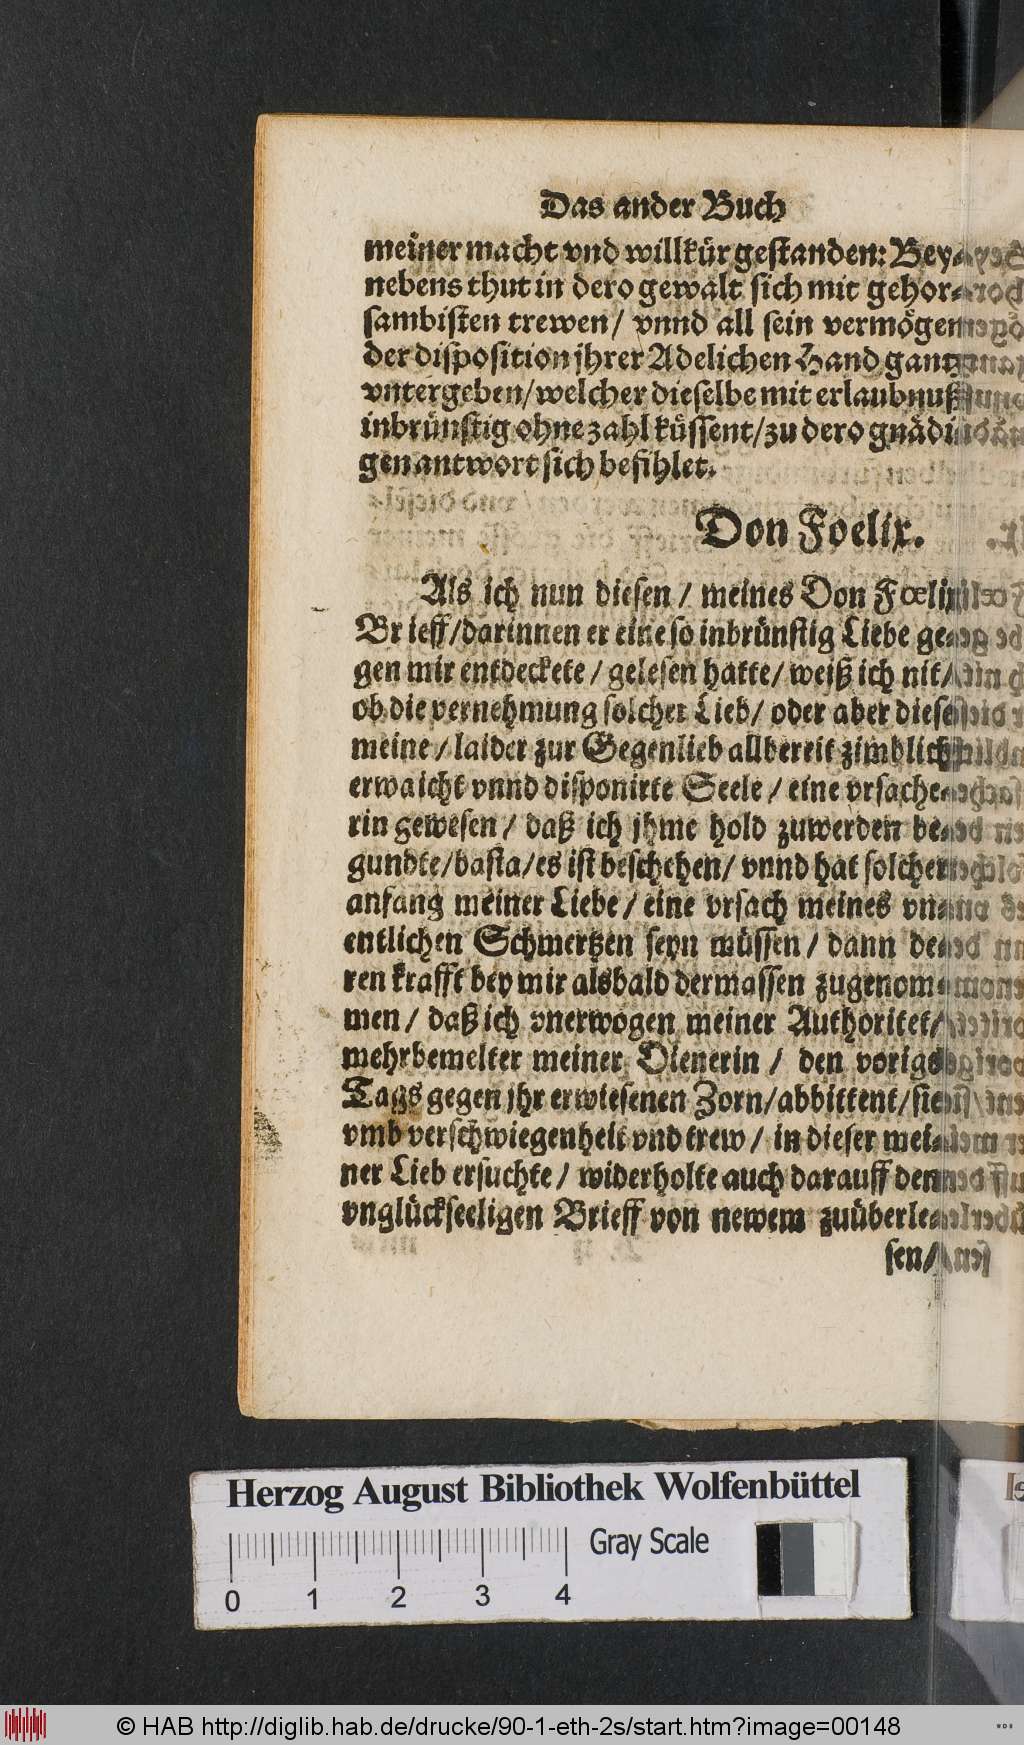 Das ander Buch
meiner macht vnd willkür gestanden: Bey-
nebens thut in dero gewalt sich mit gehor-
sambisten trewen / vnnd all sein vermögen
der disposition jhrer Adelichen Hand gantz
vntergeben/welcher dieselbe mit erlaubnuß
inbrünstig ohne zahl küssent/zu dero gnädi
gen antwort sich befihlet.
Don Foelix.
Als ich nun diesen / meines Don Fœlix
Brieff/darinnen er eine so inbrünstig Liebe ge-
gen mir entdeckete / gelesen hatte/ weiß ich nit/
ob die vernehmung solcher Lieb/ oder aber diese
meine / laider zur Gegenlieb allbereit zimblich
erwaicht vnnd disponirte Seele / eine vrsache-
rin gewesen / daß ich jhme hold zuwerden be-
gundte/basta/es ist beschehen/ vnnd hat solcher
anfang meiner Liebe / eine vrsach meines vn-
entlichen Schmertzen seyn müssen / dann de-
ren krafft bey mir alsbald dermassen zugenom-
men / daß ich vnerwogen meiner Authoritet/
mehrbemelter meiner Dienerin / den vorigs
Tags gegen jhr erwiesenen Zorn/abbittent/sie
vmb verschwiegenheit vnd trew / in dieser mei-
ner Lieb ersuchte / widerholte auch darauff den
vnglückseeligen Brieff von newem zuüberle-
sen/
Herzog August Bibliothek Wolfenbüttel
Gray Scale
0 1 2 3 4
© HAB http://diglib.hab.de/drucke/90-1-eth-2s/start.htm?image=00148